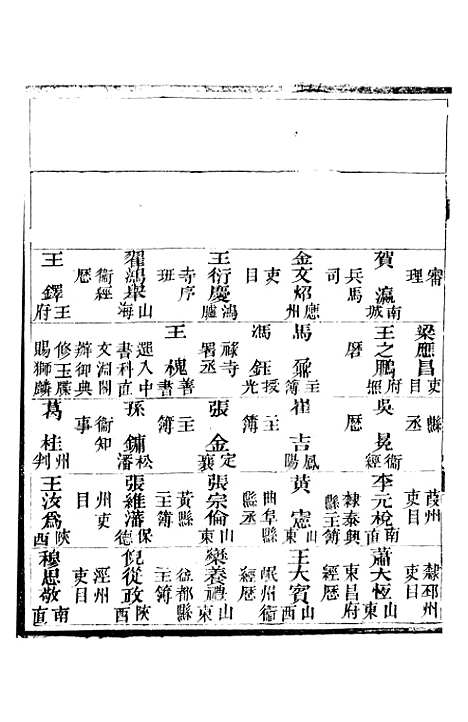 審理
賀瀛南城
兵馬司
金文炤應州
吏目
王衍慶鴻臚
寺序班
翟鴻舉山海
衞經歷
王鐸王府
梁應昌吏目
王之鵬府照
磨
馬鼐主簿
馮鈺授光
祿寺署丞
王槐善書
選入中書科直
文淵閣辦御典
修玉牒賜獅麟
縣丞
吳晃衞經
歷
崔吉鳳陽
主簿
張金定襄
主簿
孫鏞松潘
衞知事
葛桂州判
葭州吏目
李元稅南直
隸泰興縣主簿
黃憲山東
曲阜縣縣丞
張宗倫山東
黃縣主簿
張維藩保德
州吏目
王汝為陝西
隸邳州吏目
蕭大恆山東
東昌府經歷
王大賓山西
岷州衞經歷
欒養禮山東
益都縣主簿
倪從政陝西
涇州吏目
穆思敬南直